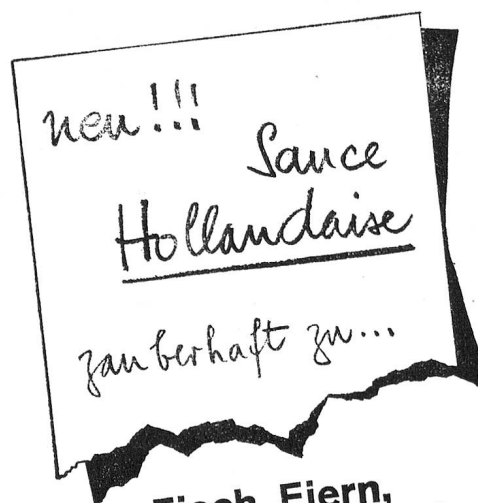 neu!!!
Sauce
Hollandaise
zauberhaft zu...
Fisch, Eiern,